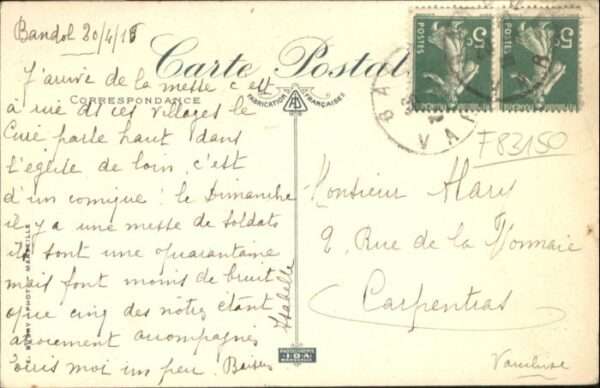 Bandol 20/4/15
Carte Postale
CORRESPONDANCE
FABRICATION FRANÇAISE
J'arrive de la messe c'est
à rire ds ces villages le
Curé parle haut dans
l'église de loin, c'est
d'un comique! le Dimanche
il y a une messe de soldats
ils sont une quarantaine
mais font moins de bruit
que cinq des nôtres étant
accompagnés
moi un peu. Baisers
Isabelle
POSTES 5c
POSTES 5c
VAR
F83150
Monsieur Mary
2, Rue de la Monnaie
Carpentras
Vaucluse
MARSEILLE